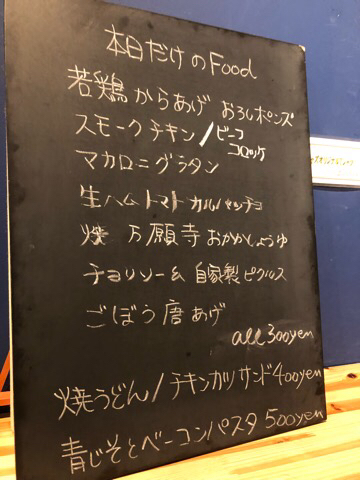 本日だけのFood
若鶏からあげ おろしポンズ
スモークチキン/ビーフコロッケ
マカロニグラタン
生ハムトマトカルパッチョ
焼 万願寺おかかしょうゆ
チョリソー& 自家製ピクルス
ごぼう唐あげ
all300yen
焼うどん/チキンカツサンド400yen
青じそとベーコンパスタ500yen